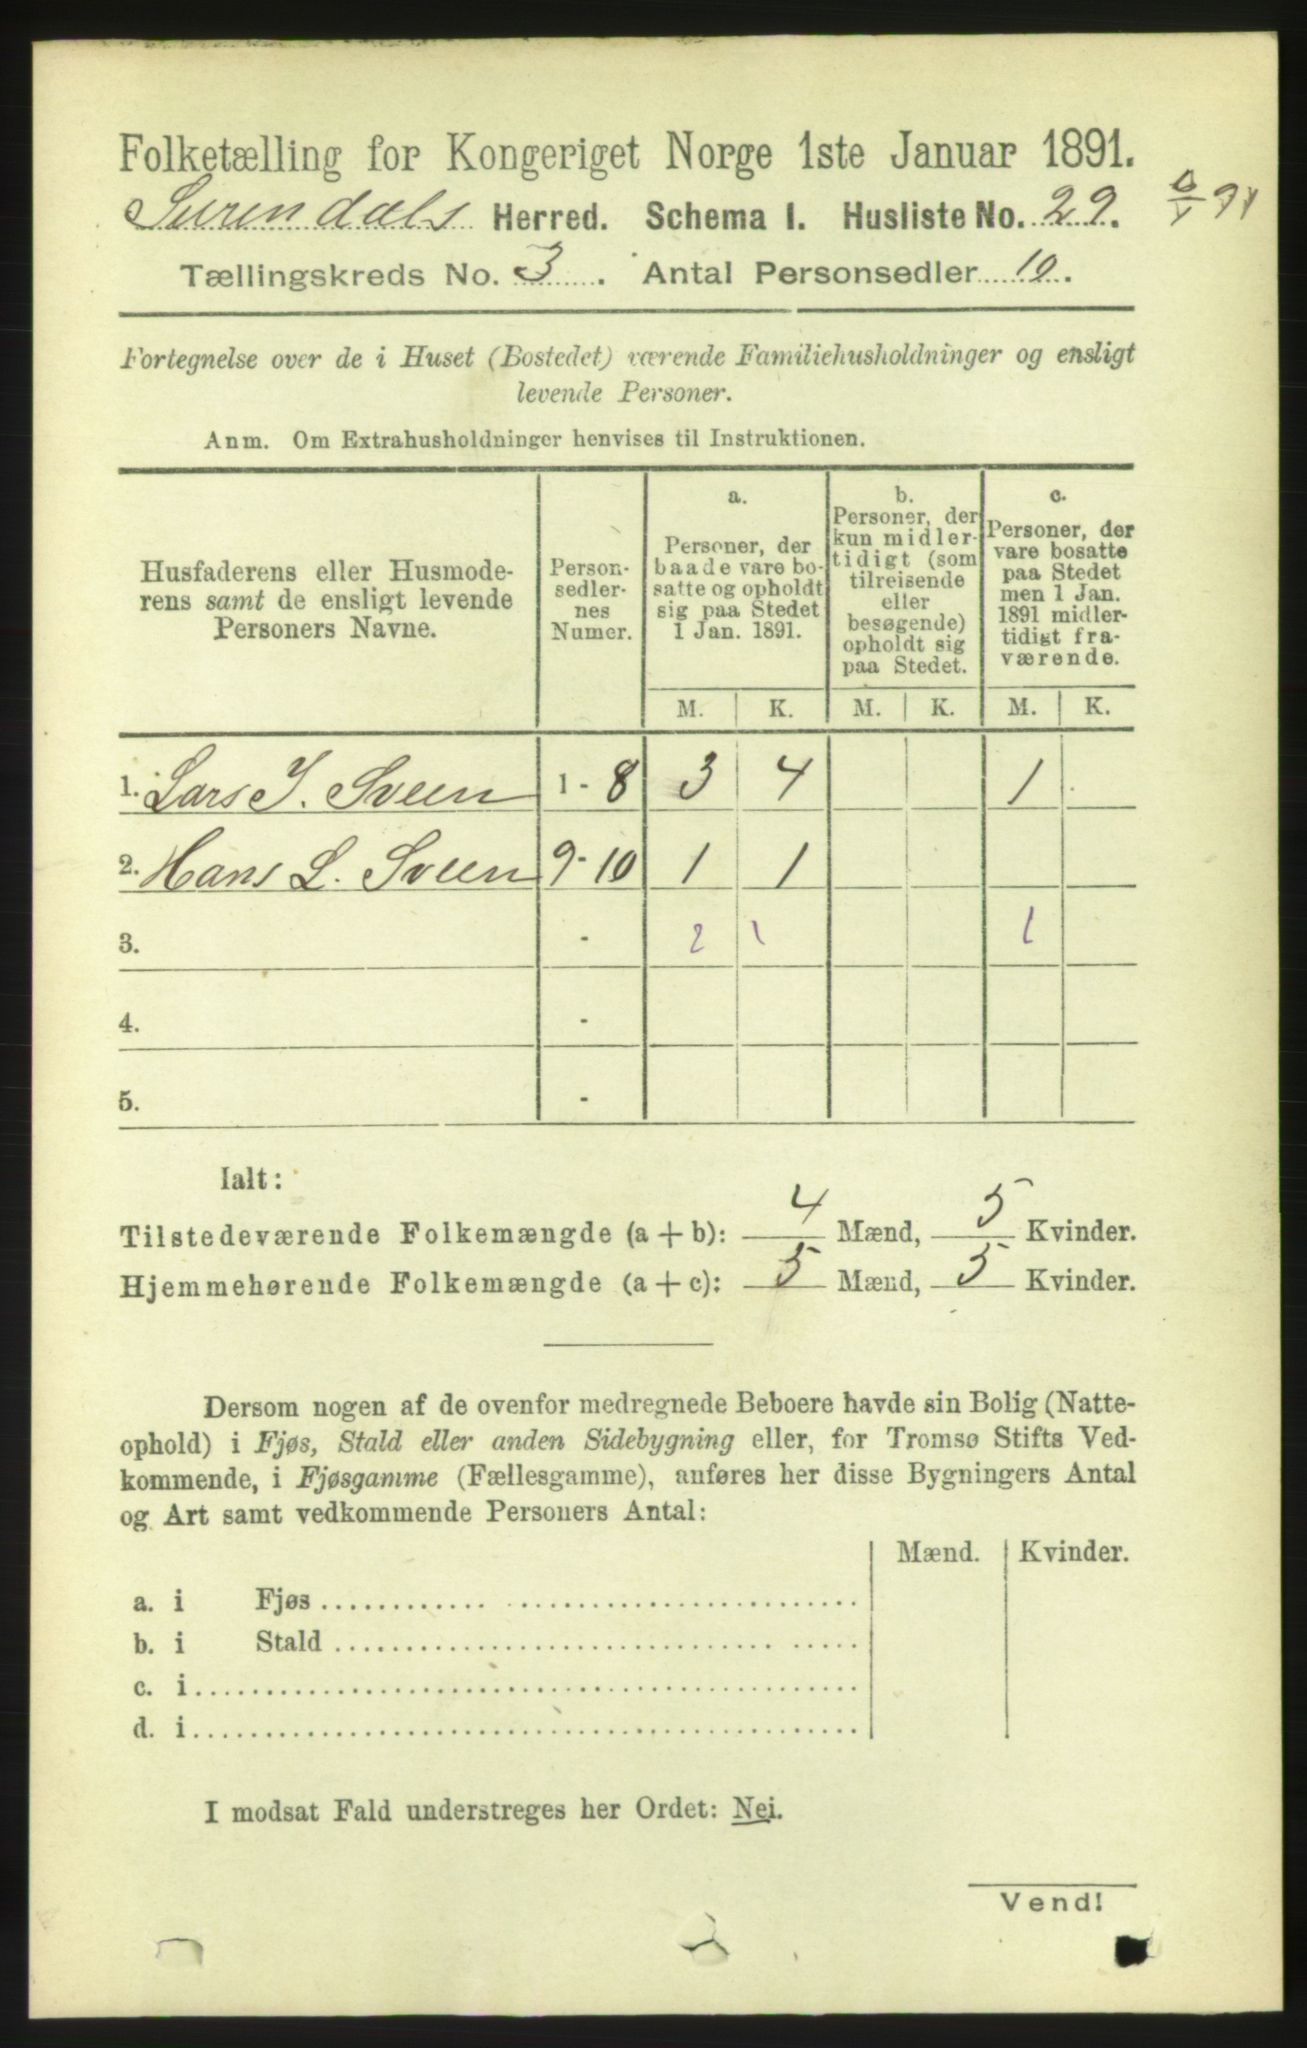 Folketælling for Kongeriget Norge 1ste Januar 1891.
Surendals Herred. Schema I. Husliste No. 29.
Tællingskreds No. 3. Antal Personsedler 10.
Fortegnelse over de i Huset (Bostedet) værende Familiehusholdninger og ensligt
levende Personer.
Anm. Om Extrahusholdninger henvises til Instruktionen.
Husfaderens eller Husmode-
rens samt de ensligt levende
Personers Navne.
Person-
sedler-
nes
Numer.
a.
Personer, der
baade vare bo-
satte og opholdt
sig paa Stedet
1 Jan. 1891.
b.
Personer, der
kun midler-
tidigt (som
tilreisende
eller
besøgende)
opholdt sig
paa Stedet.
c.
Personer, der
vare bosatte
paa Stedet
men 1 Jan.
1891 midler-
tidigt fra-
værende.
M. K. M. K. M. K.
1. Lars J. Sveen 1 - 8 3 4 1
2. Hans L. Sveen 9 - 10 1 1
3. - 2 1 1
4. -
5. -
Ialt:
Tilstedeværende Folkemængde (a + b): 4 Mænd, 5 Kvinder.
Hjemmehørende Folkemængde (a + c): 5 Mænd, 5 Kvinder.
Dersom nogen af de ovenfor medregnede Beboere havde sin Bolig (Natte-
ophold) i Fjøs, Stald eller anden Sidebygning eller, for Tromsø Stifts Ved-
kommende, i Fjøsgamme (Fællesgamme), anføres her disse Bygningers Antal
og Art samt vedkommende Personers Antal:
Mænd. Kvinder.
a. i Fjøs
b. i Stald
c. i
d. i
I modsat Fald understreges her Ordet: Nei.
Vend!